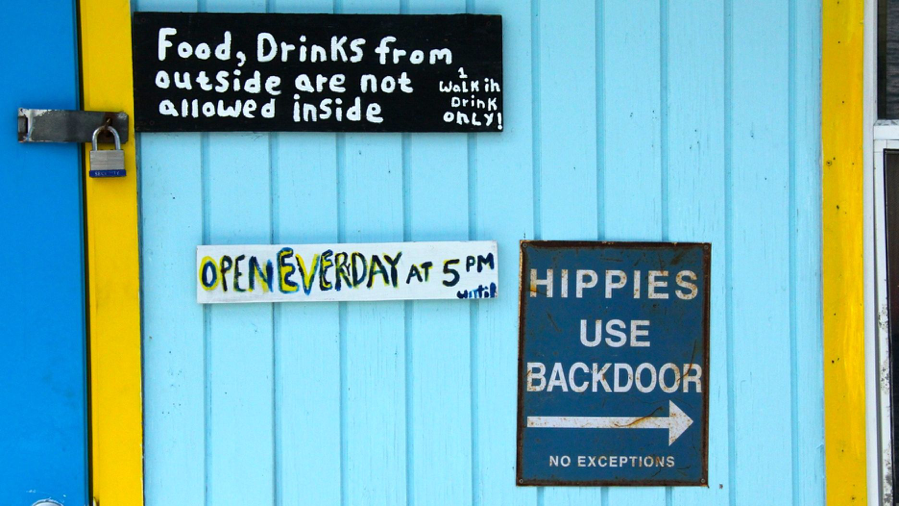 Food, Drinks from
outside are not
allowed inside
1
Walk in
Drink
ONLY!
OPEN EVERDAY AT 5 PM
until
HIPPIES
USE
BACKDOOR
NO EXCEPTIONS